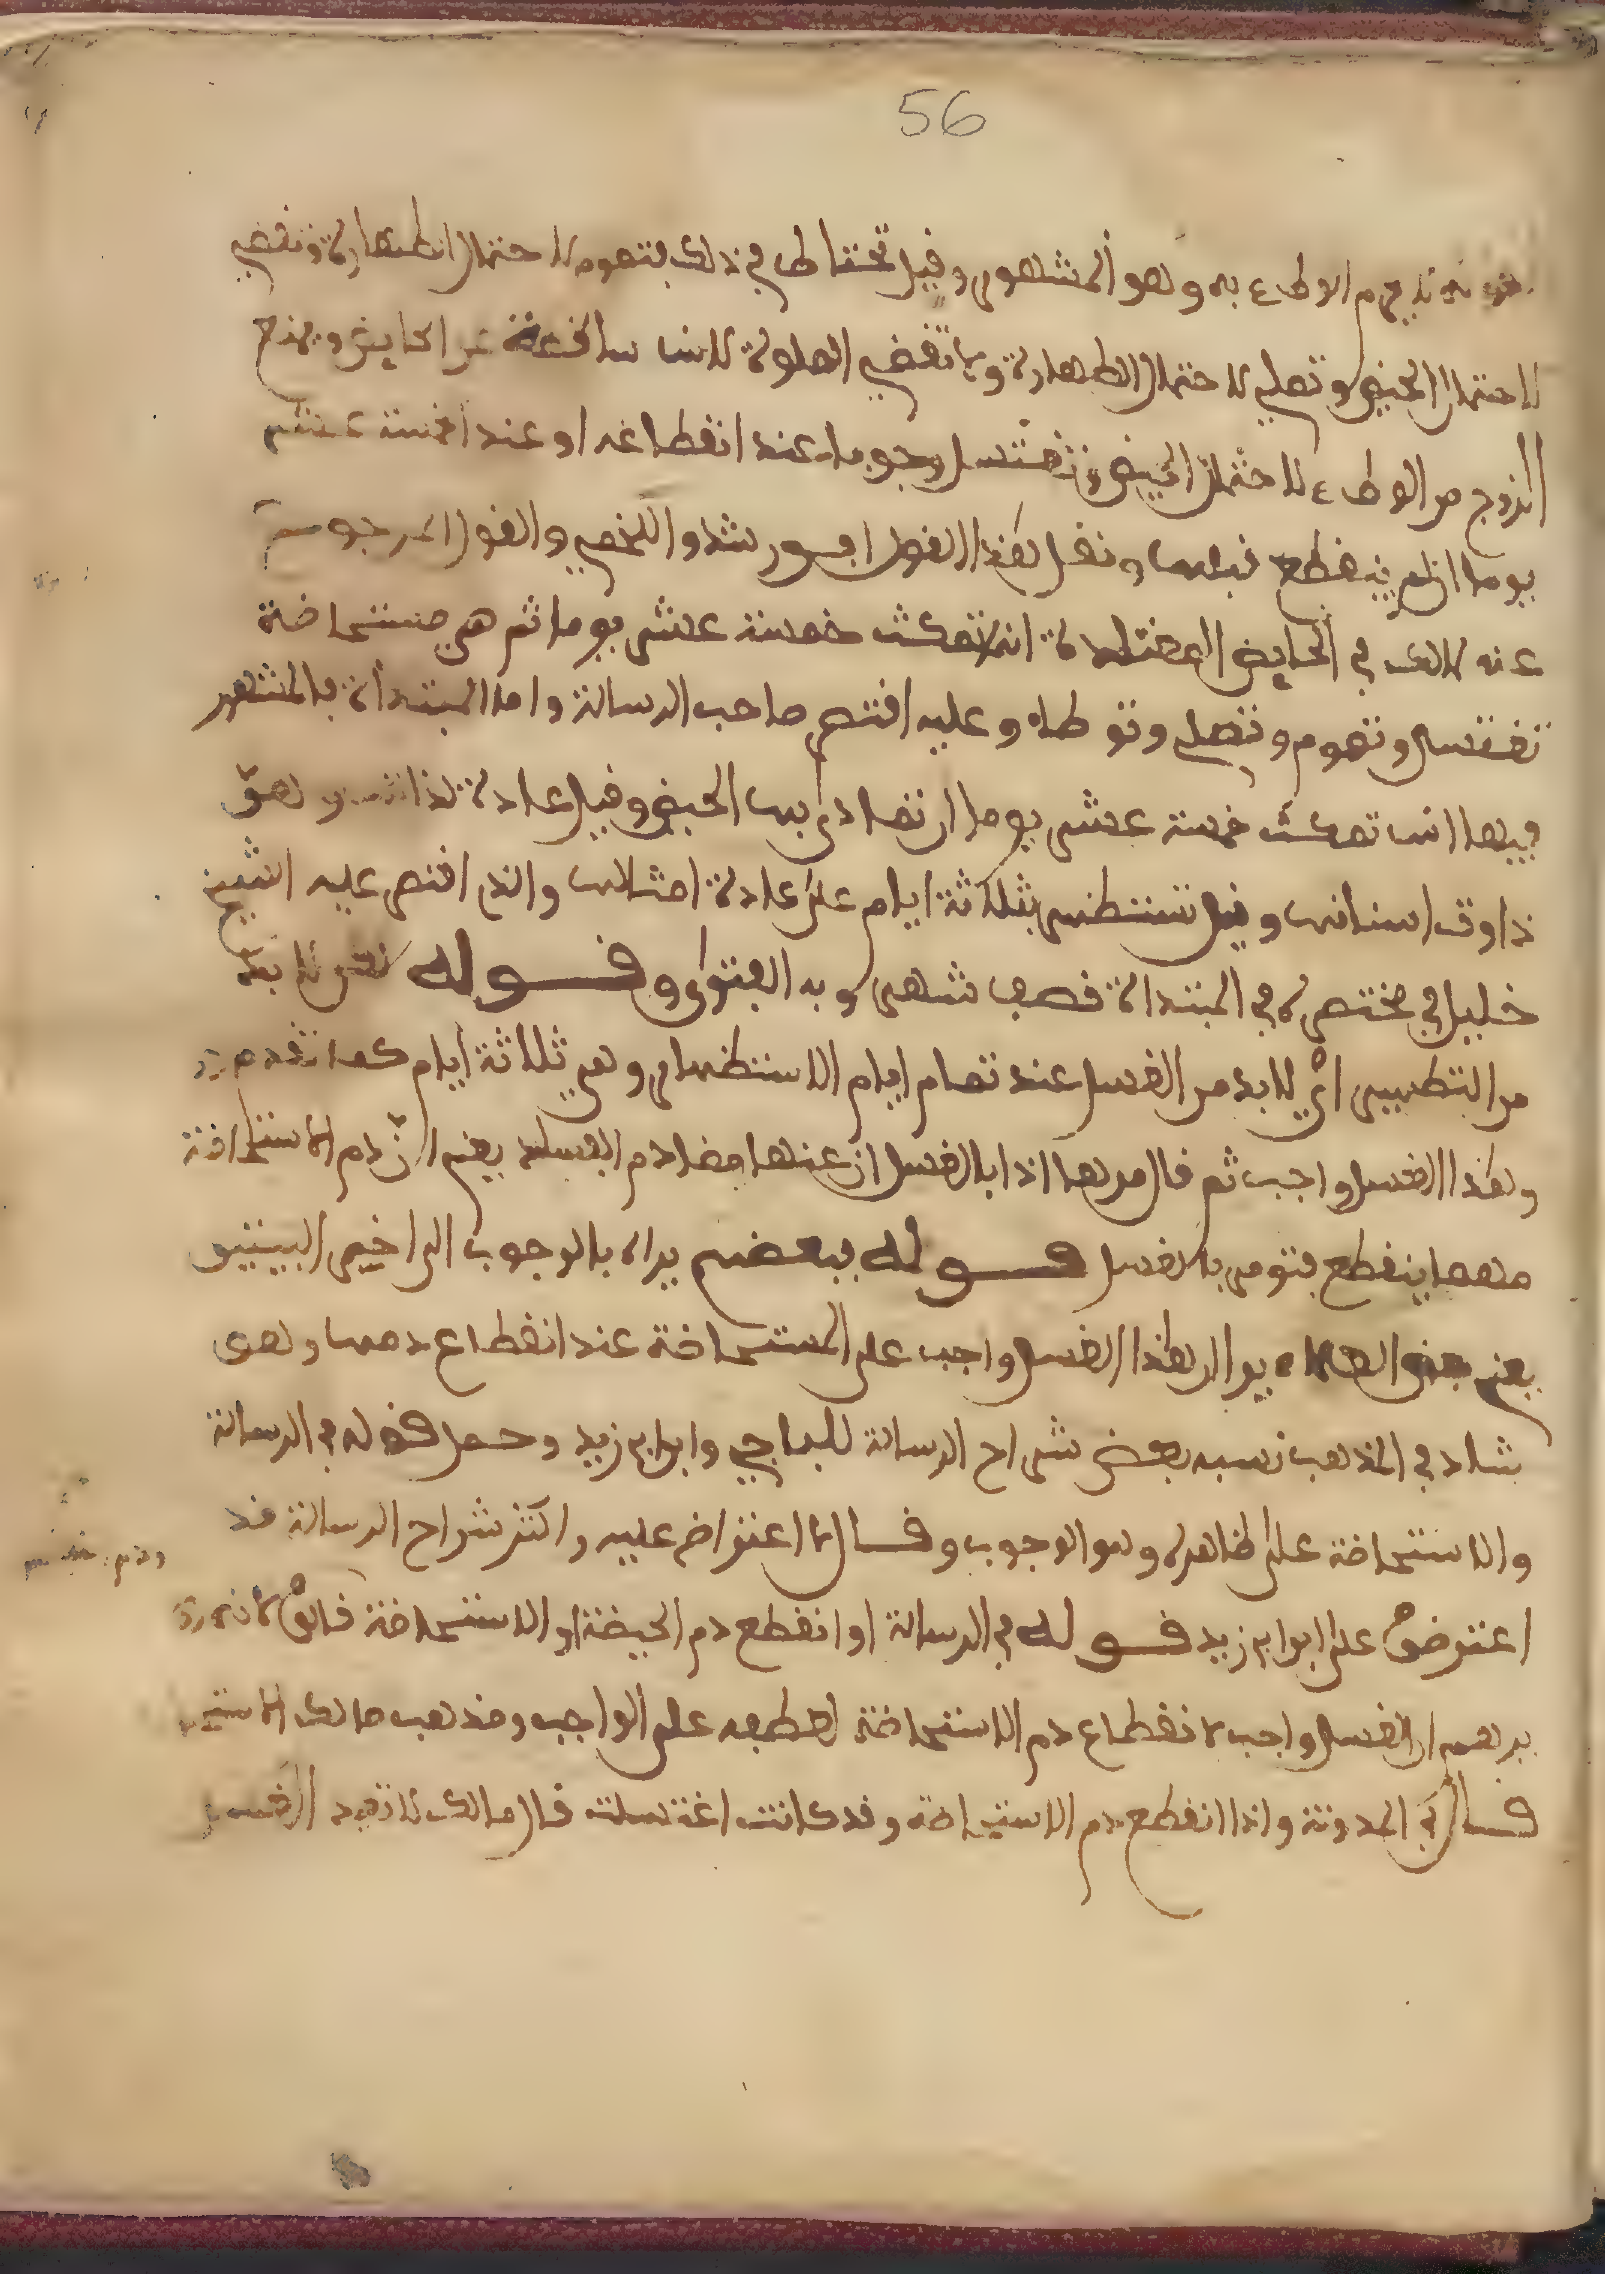 56
لا يحرم الوطء به وهو المشهور وقيل تحتاط في ذلك فتصوم لاحتمال الطهارة وتقضي
لاحتمال الحيض وتصلي لاحتمال الطهارة ولا تقضي الصلوة لانها ساقطة عن الحايض ويمنع
الزوج من الوطء لاحتمال الحيض وتغتسل وجوبا عند انقطاعه او عند الخمسة عشر
يوما ان لم ينقطع قبلها ونقل هذا القول ابن رشد واللخمي والقول المرجوع
عنه لمالك في الحايض المعتادة انها تمكث خمسة عشر يوما ثم هي مستحاضة
تغتسل وتصوم وتصلي وتوطا وعليه اقتصر صاحب الرسالة واما المبتدأة فالمشهور
فيها انها تمكث خمسة عشر يوما ان تمادى بها الحيض وقيل عادة لذاتها وهو
ذاوق اسنانها وقيل تستظهر بثلاثة ايام على عادة امثالها والذي اقتصر عليه الشيخ
خليل في مختصره في المبتداة نصف شهر وبه الفتوى وقوله لا بد
من التطهير اي لابد من الغسل عند تمام ايام الاستظهار وهي ثلاثة ايام كما تقدم
وهذا الغسل واجب ثم قال مرها اذا بالغسل ان عنها مضا دم الفساد يعني ان دم الاستحاضة
مهما ينقطع فتومر بالغسل قوله فبعضهم يراه بالوجوب الى اخر البيتين
يعني بعض العلماء يرا ان هذا الغسل واجب على المستحاضة عند انقطاع دمها وهو
شاذ في المذهب نسبه بعض شراح الرسالة للباجي وابن ابي زيد وحمل قوله في الرسالة
والاستحاضة على ظاهره وهو الوجوب وقال لا اعتراض عليه واكثر شراح الرسالة قد
اعترضوا على ابن ابي زيد قوله في الرسالة او انقطع دم الحيضة او الاستحاضة قالوا لانه
يوهم ان الغسل واجب لانقطاع دم الاستحاضة لعطفه على الواجب ومذهب مالك
قال في المدونة واذا انقطع دم الاستحاضة وقد كانت اغتسلت قال مالك لا تعيد الغسل